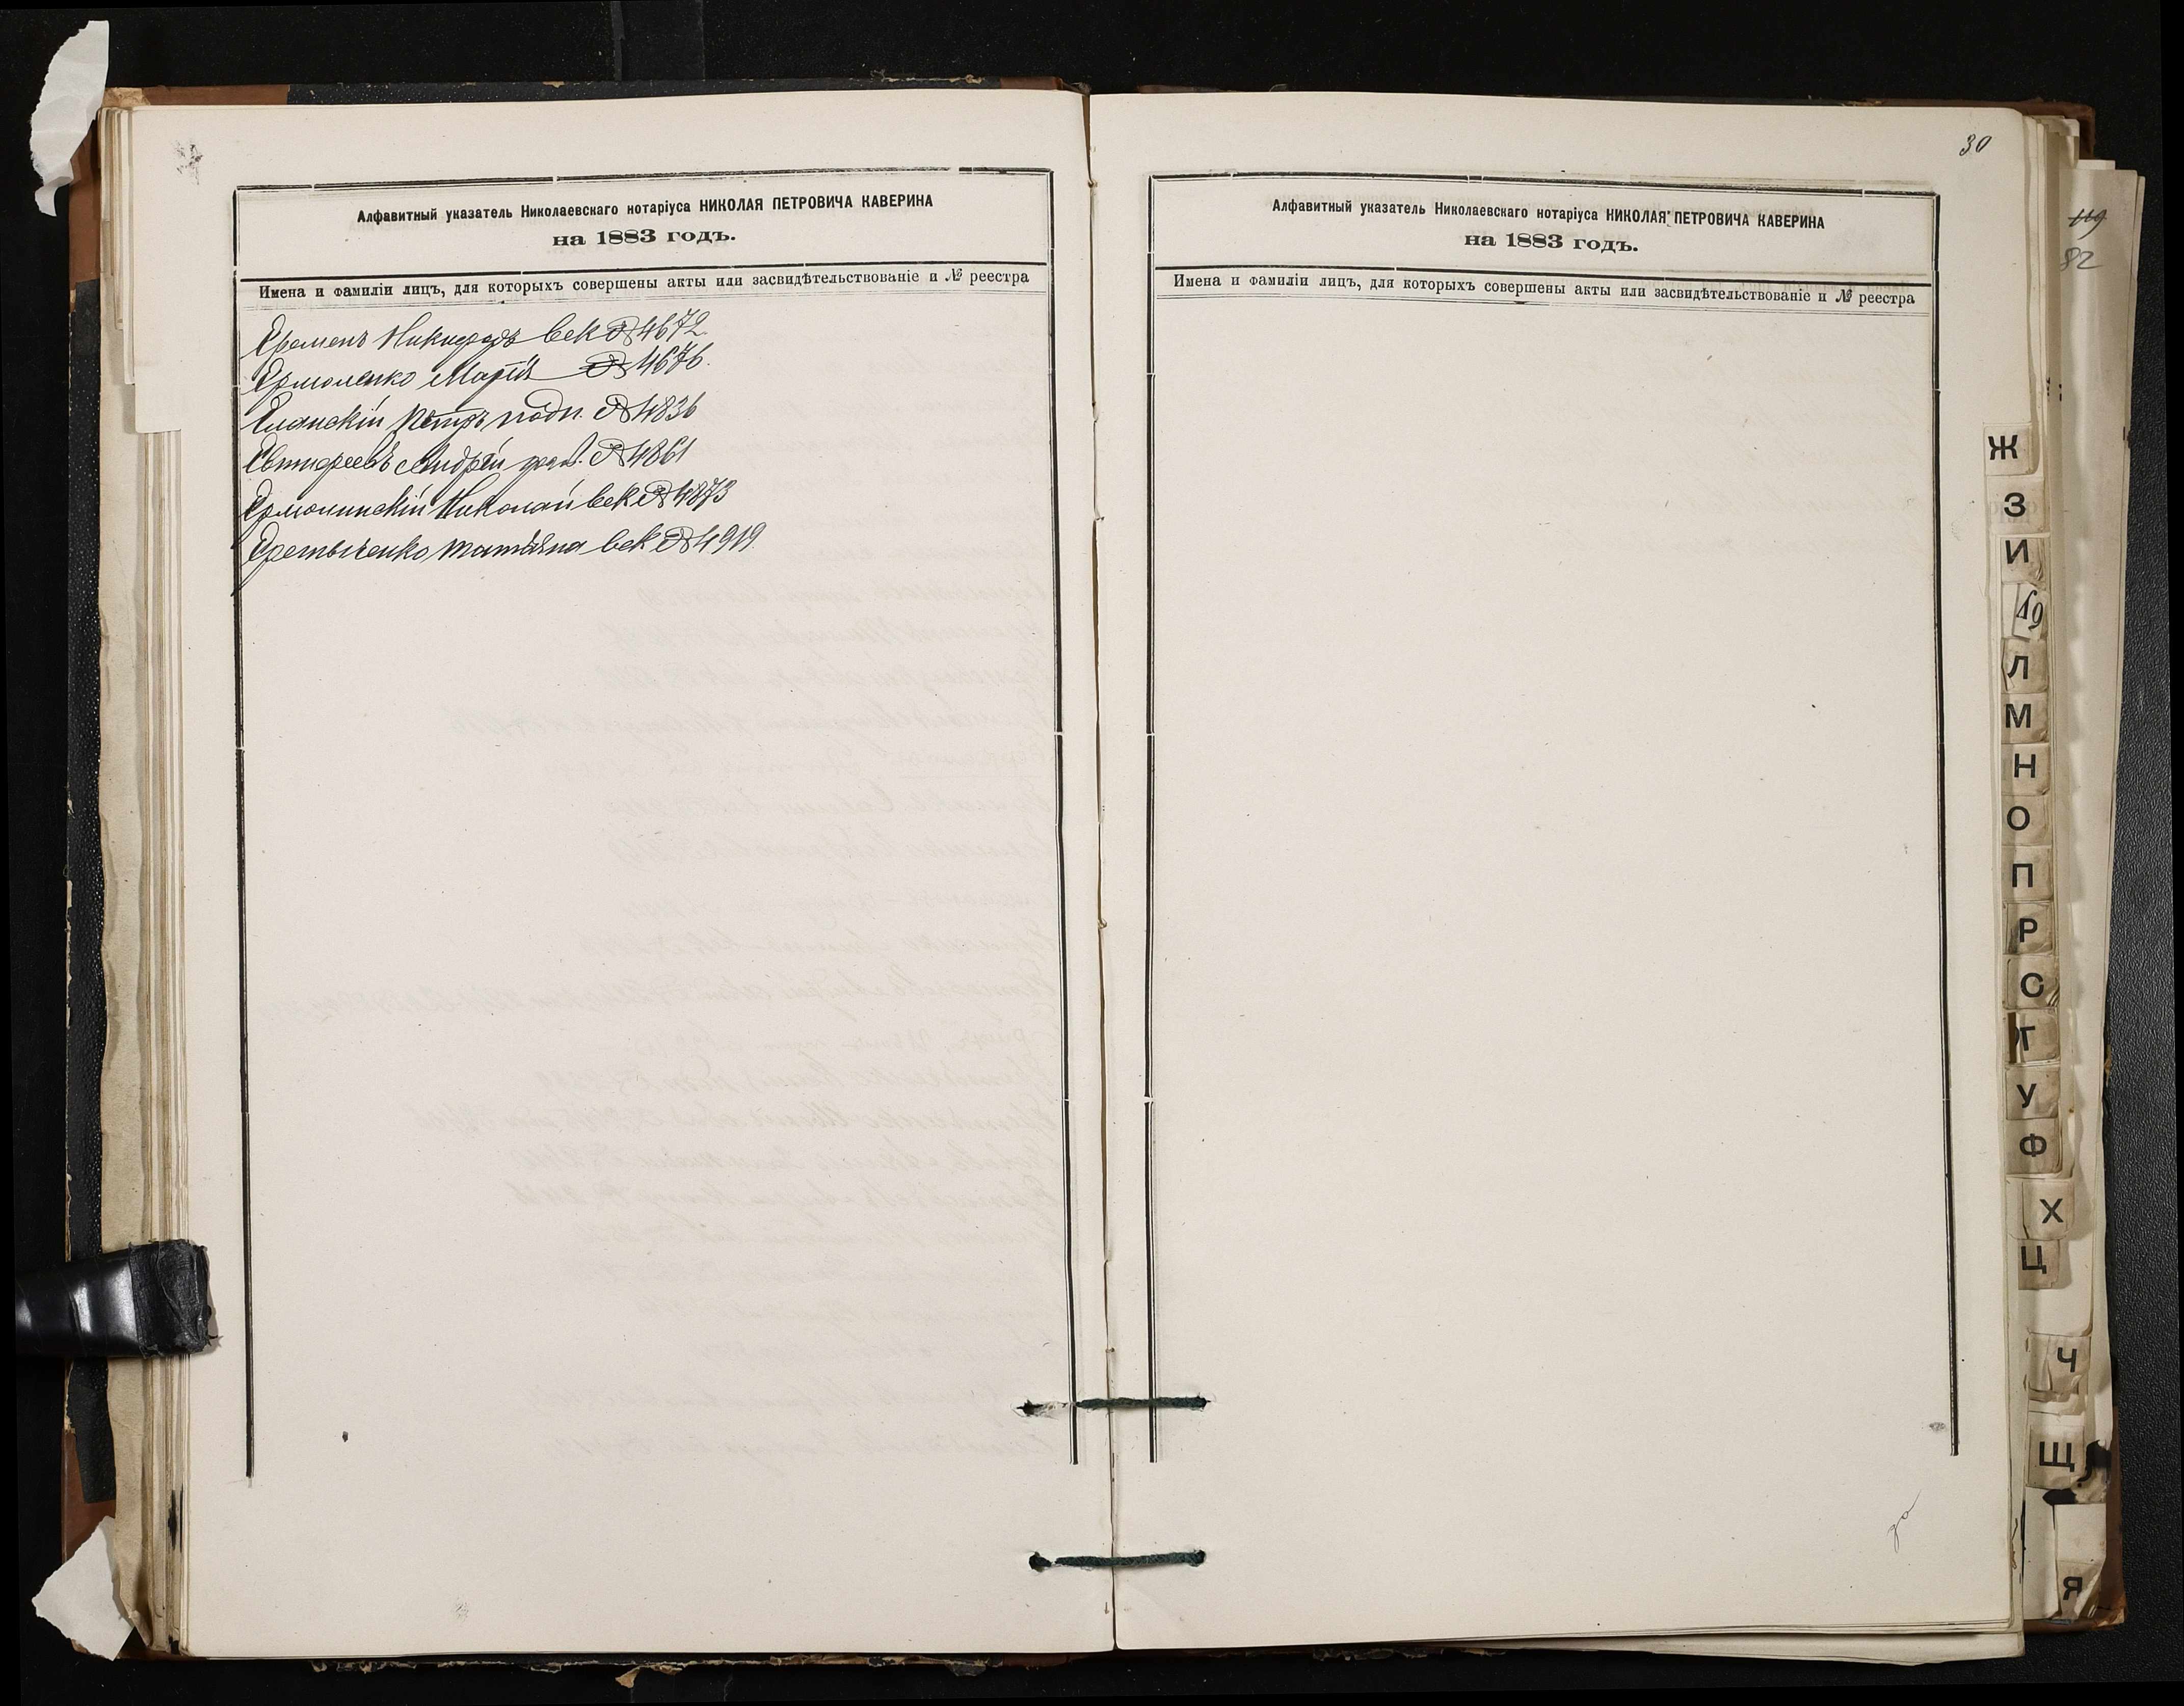 Алфавитный указатель Николаевскаго нотаріуса НИКОЛАЯ ПЕТРОВИЧА КАВЕРИНА
на 1883 годъ.
Имена и фамиліи лицъ, для которыхъ совершены акты или засвидѣтельствованіе и № реестра
Еременъ Никифоръ век № 4672
Ермоленко Марія № 4676.
Еланскій Петръ подп. № 4836
Евтифеевъ Андрей № 4861
Николай век № 4873
Татьяна век № 4919
30
Алфавитный указатель Николаевскаго нотаріуса НИКОЛАЯ ПЕТРОВИЧА КАВЕРИНА
на 1883 годъ.
Имена и фамиліи лицъ, для которыхъ совершены акты или засвидѣтельствованіе и № реестра
119
82
Ж
З
И
19
Л
М
Н
О
П
Р
С
Т
У
Ф
Х
Ц
Ч
Щ
Я